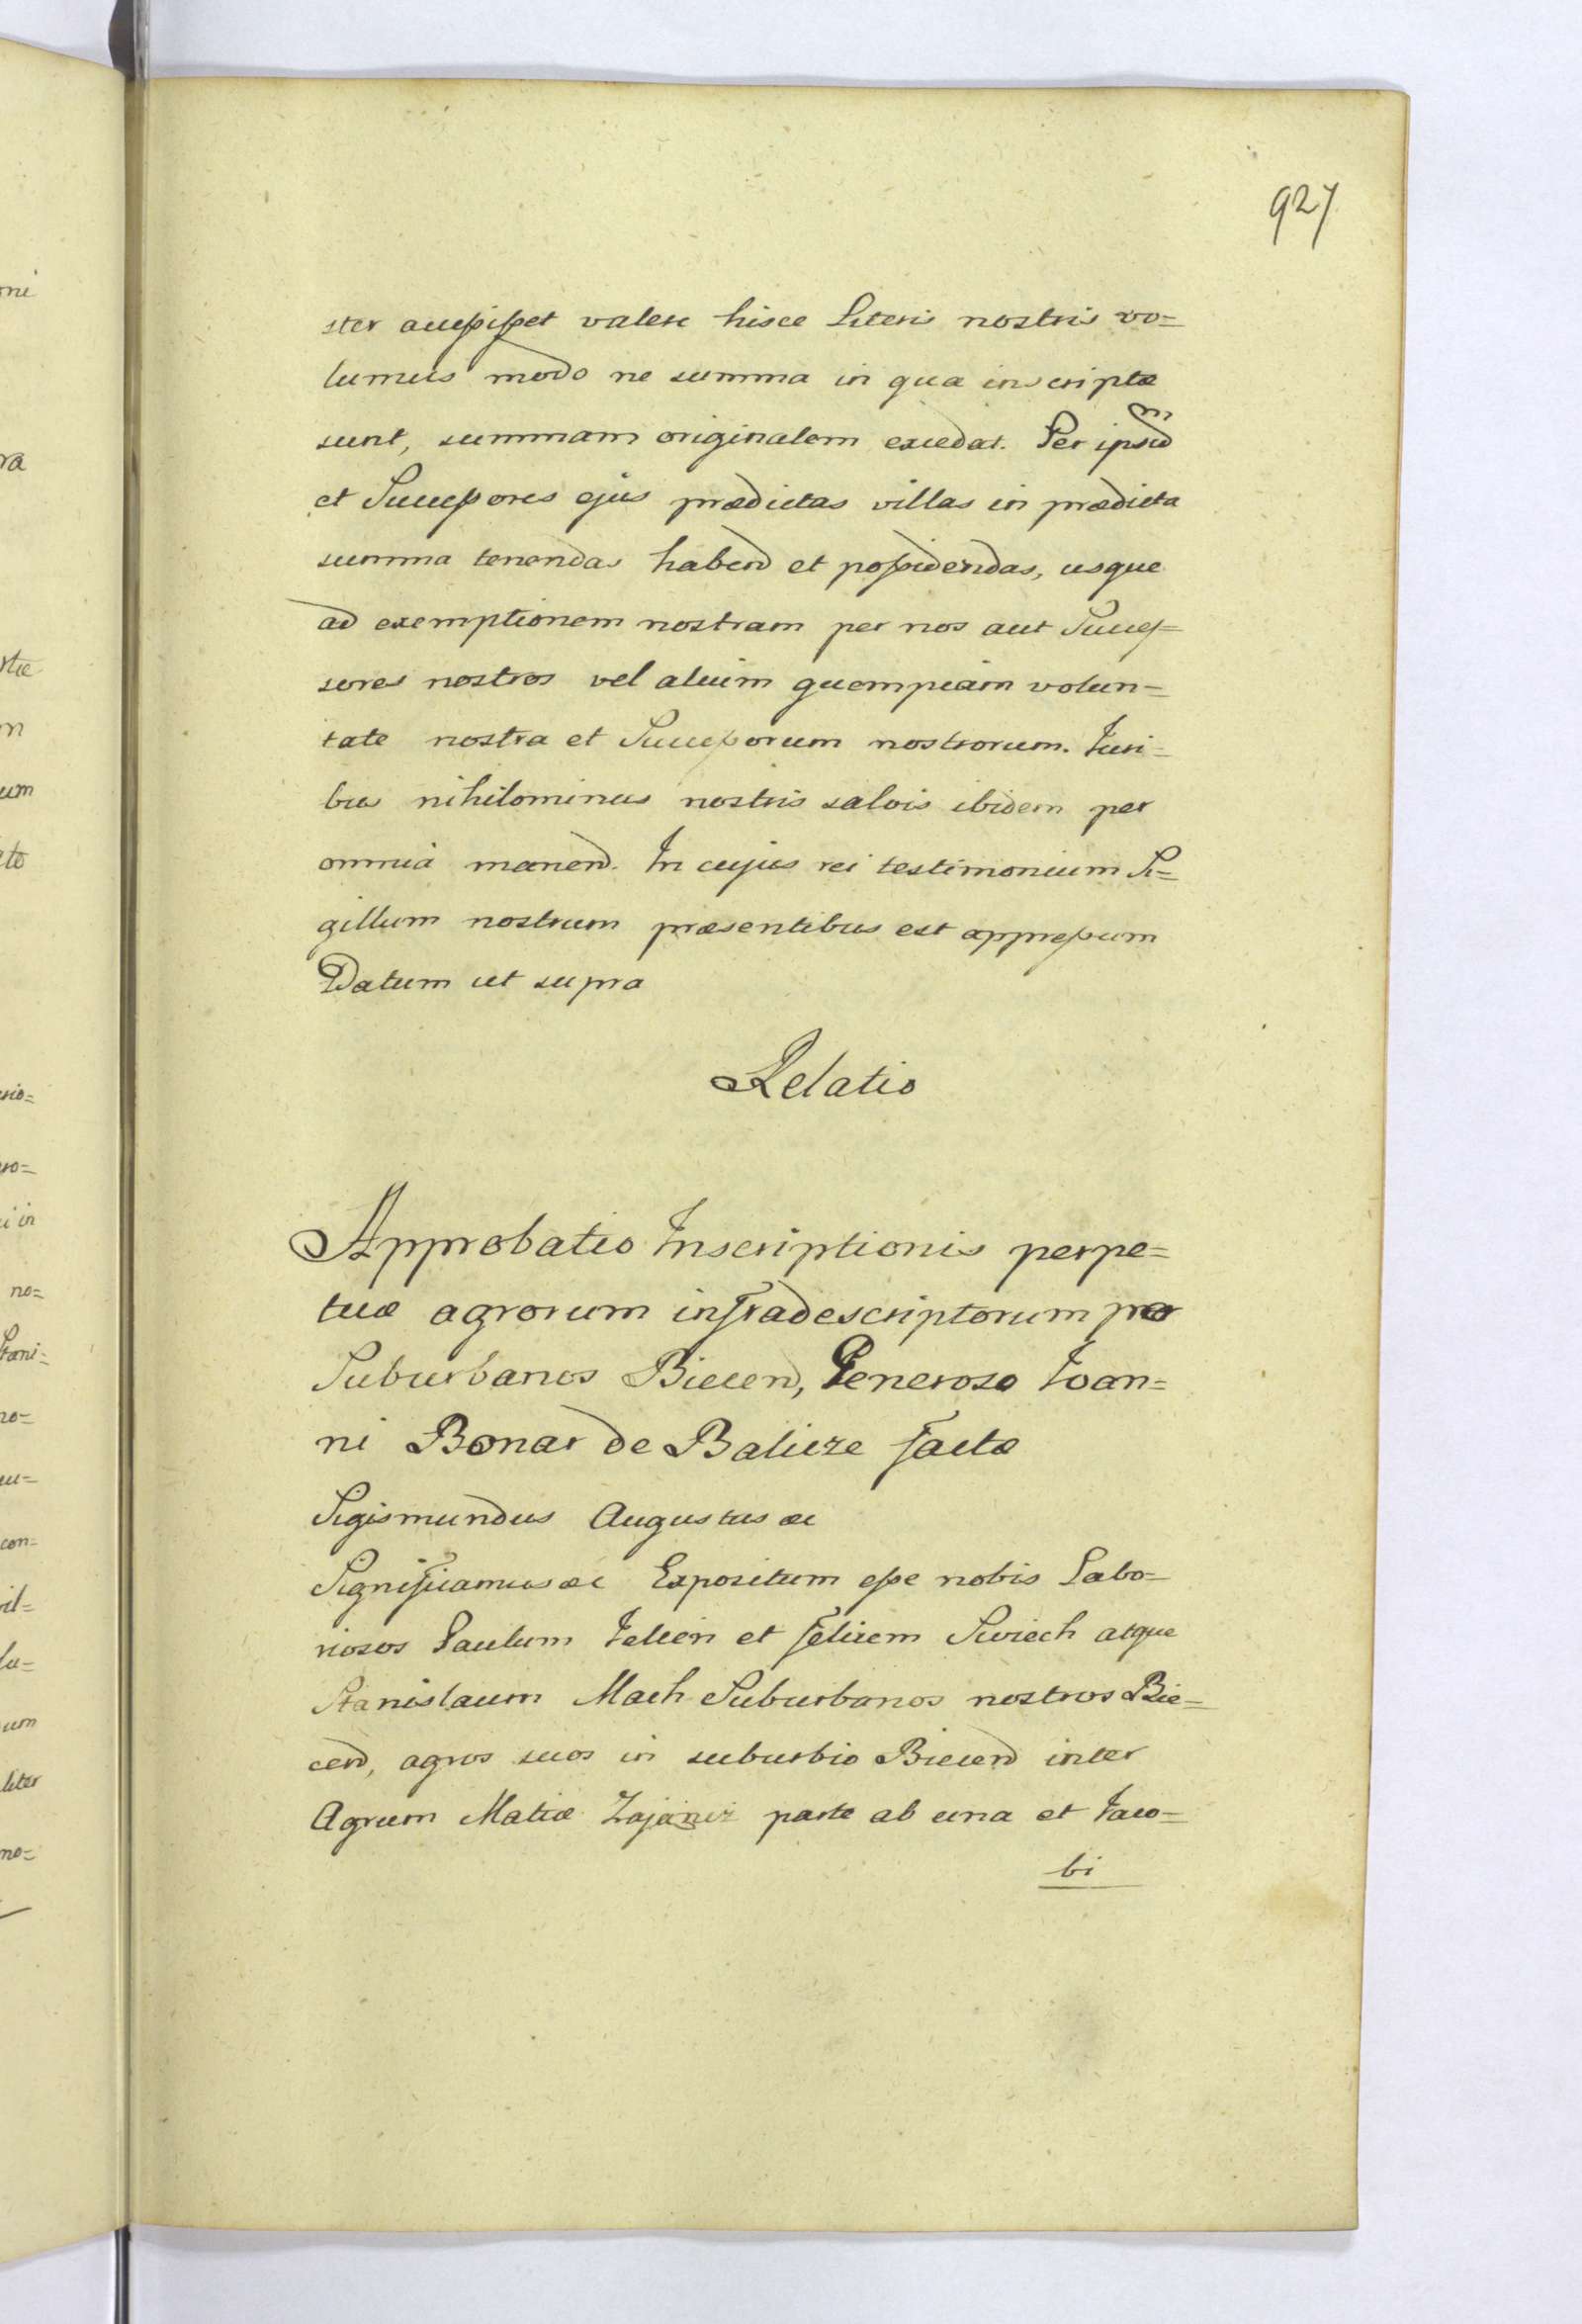 927
ster accessisset valere hisce Literis nostris vo=
lumus modo ne summa in qua inscriptæ
sunt, summam originalem excedat. Per ipsum
et Successores ejus prædictas villas in prædicta
summa tenendas habend et possidendas, usque
ad exemptionem nostram per nos aut Succes=
sores nostros vel alium quempiam volun=
tate nostra et Successorum nostrorum. Juri=
bus nihilominus nostris salvis ibidem per
omnia manend. In cujus rei testimonium Si=
gillum nostrum præsentibus est appressum
Datum ut supra
Relatio
Approbatio Inscriptionis perpe=
tuæ agrorum infradescriptorum per
Suburbanos Biecen, Generoso Joan=
ni Bonar de Balicze factæ
Sigismundus Augustus &c
Significamus &c Expositum esse nobis Labo=
riosos Paulum Jelien et Felicem Swiech atque
Stanislaum Mach Suburbanos nostros Bie=
cen, agros suos in suburbio Biecen inter
Agrum Matiæ Zajanis parte ab una et Jaco=
bi